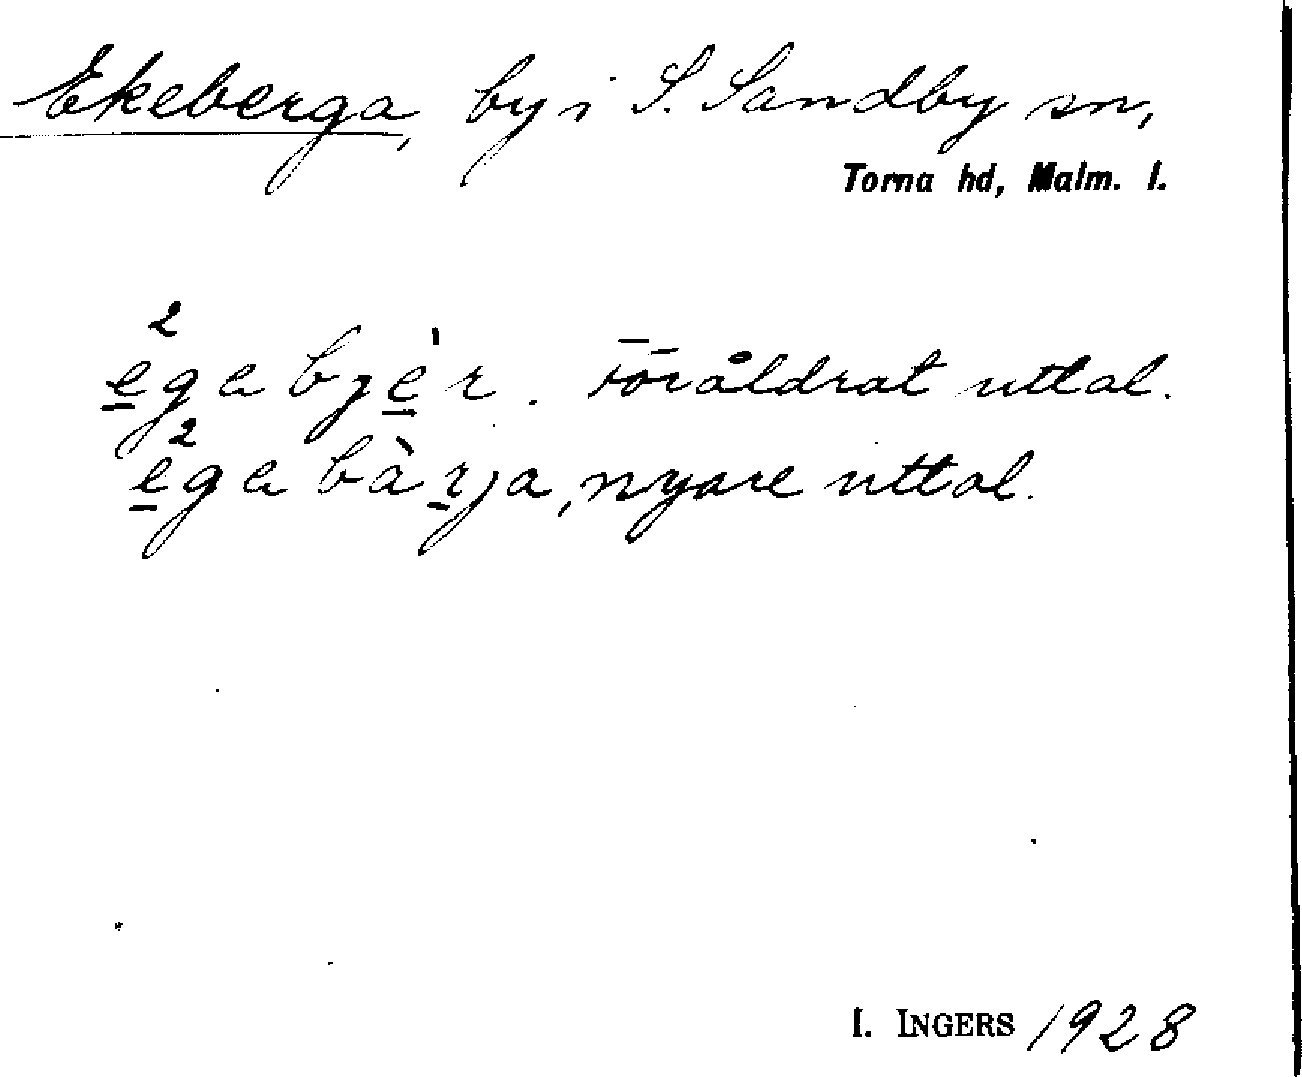 Ekeberga, by i S. Sandby sn,
Torna hd, Malm. l.
e̲²gabjè̲r. Föråldrat uttal.
e̲²gabàr̲ja, nyare uttal.
I. INGERS 1928